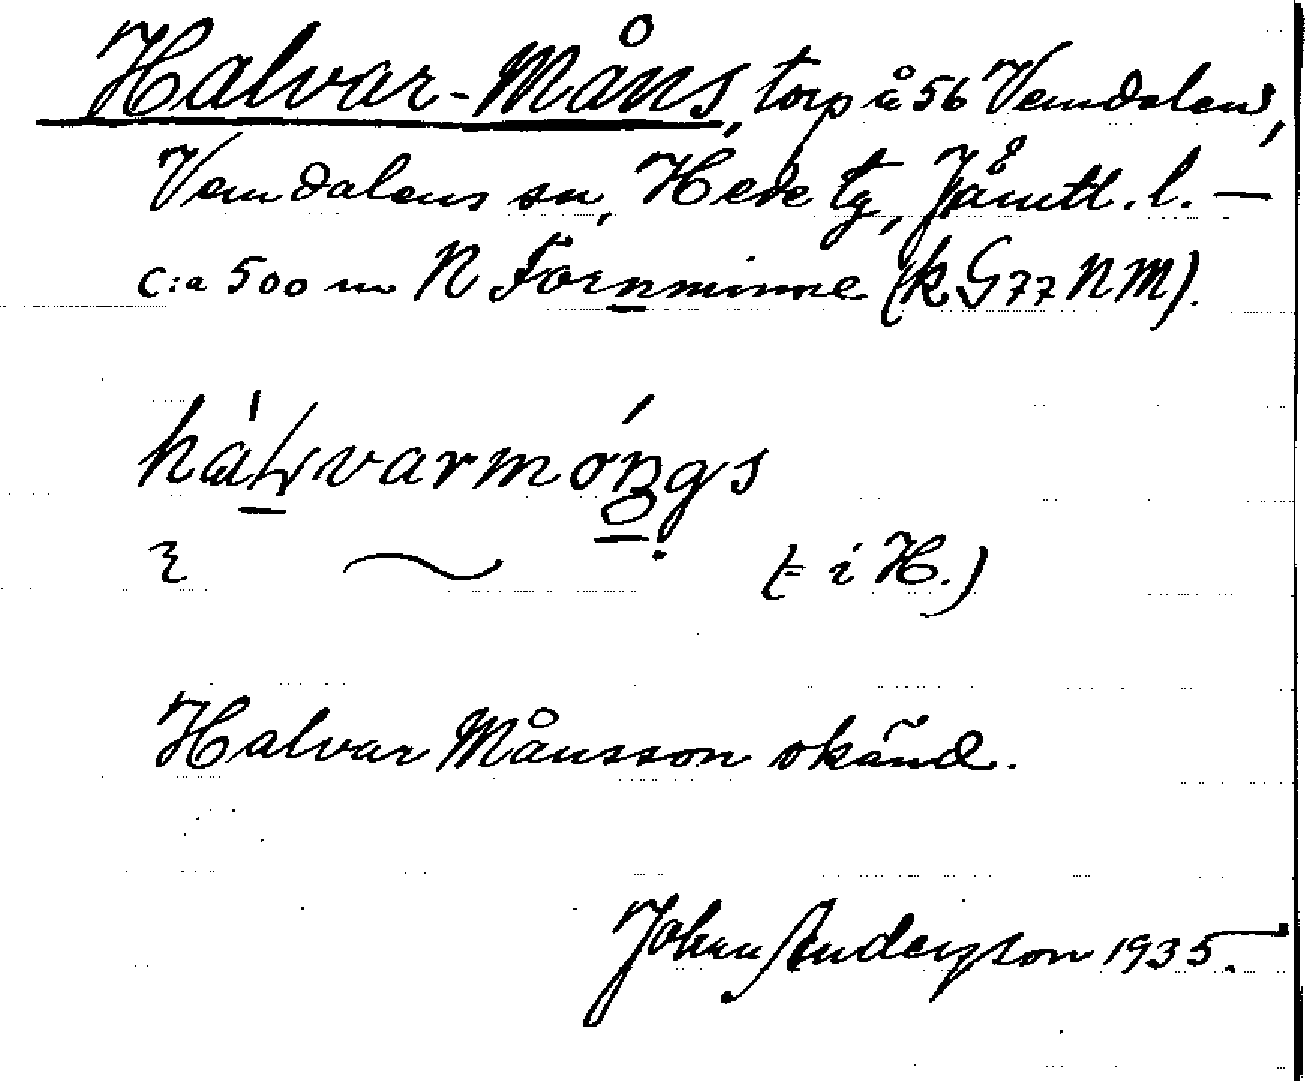 Halvar-Måns, torp å 56 Vemdalens,
Vemdalens sn, Hede tg, Jämtl. l. —
c:a 500 m N Fornminne (k G77 NM).
hálvarmóngs
(= i H.)
Halvar Månsson okänd.
Johan Anderson 1935.